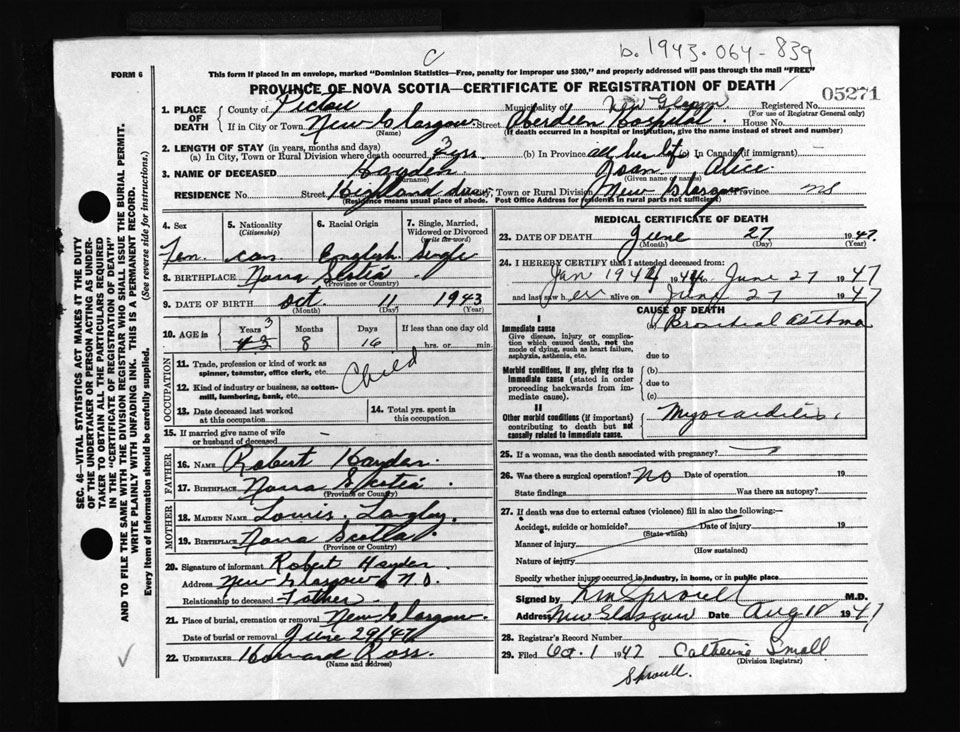 C
b. 1943. 064-839
FORM 6
This form if placed in an envelope, marked "Dominion Statistics—Free, penalty for improper use $300," and properly addressed will pass through the mail "FREE"
PROVINCE OF NOVA SCOTIA—CERTIFICATE OF REGISTRATION OF DEATH
05271
1. PLACE OF DEATH County of Pictou Municipality of New Registered No.
(For use of Registrar General only)
If in City or Town New Glasgow Street Aberdeen Hospital House No.
(Name) (If death occurred in a hospital or institution, give the name instead of street and number)
2. LENGTH OF STAY (in years, months and days)
(a) In City, Town or Rural Division where death occurred 3 yrs. (b) In Province all her life (c) In Canada (if immigrant) —
3. NAME OF DECEASED Hayden Joan Alice
(Surname) (Given name or names)
RESIDENCE No. Street Highland Town or Rural Division New Glasgow Province NS
(Residence means usual place of abode. Post Office Address for residents in rural parts not sufficient)
4. Sex 5. Nationality (Citizenship) 6. Racial Origin 7. Single, Married, Widowed or Divorced (write the word)
Fem. Can. English Single
8. BIRTHPLACE Nova Scotia
(Province or Country)
9. DATE OF BIRTH Oct. 11 1943
(Month) (Day) (Year)
10. AGE in Years Months Days If less than one day old
3 8 16 hrs. or min.
OCCUPATION
11. Trade, profession or kind of work as spinner, teamster, office clerk, etc.
Child
12. Kind of industry or business, as cotton-mill, lumbering, bank, etc.
13. Date deceased last worked at this occupation
14. Total yrs. spent in this occupation
15. If married give name of wife or husband of deceased —
FATHER
16. NAME Robert Hayden.
17. BIRTHPLACE Nova Scotia
(Province or Country)
MOTHER
18. MAIDEN NAME Langley.
19. BIRTHPLACE Nova Scotia
(Province or Country)
20. Signature of informant Robert Hayden
Address New Glasgow
Relationship to deceased Father
21. Place of burial, cremation or removal New Glasgow.
Date of burial or removal June 29/47
22. UNDERTAKER Howard Ross.
(Name and address)
MEDICAL CERTIFICATE OF DEATH
23. DATE OF DEATH June 27 1947.
(Month) (Day) (Year)
24. I HEREBY CERTIFY that I attended deceased from:
Jan 1944 to June 27 1947
and last saw her alive on June 27 1947
CAUSE OF DEATH
I
Immediate cause (a) Bronchial Asthma
Give disease, injury or complication which caused death, not the mode of dying, such as heart failure, asphyxia, asthenia, etc. due to
Morbid conditions, if any, giving rise to immediate cause (stated in order proceeding backwards from immediate cause). (b)
due to
(c)
II
Other morbid conditions (if important) contributing to death but not causally related to immediate cause. Myocarditis.
25. If a woman, was the death associated with pregnancy? —
26. Was there a surgical operation? No Date of operation 19
State findings Was there an autopsy?
27. If death was due to external causes (violence) fill in also the following:—
Accident, suicide or homicide? Date of injury 19
(State which)
Manner of injury
(How sustained)
Nature of injury
Specify whether injury occurred in industry, in home, or in public place
Signed by Sproull M.D.
Address New Glasgow Date Aug 18 1947
28. Registrar's Record Number
29. Filed Oct. 1 1947 Catherine Small
(Division Registrar)
Sproull.
SEC. 46—VITAL STATISTICS ACT MAKES IT THE DUTY
OF THE UNDERTAKER OR PERSON ACTING AS UNDER-
TAKER TO OBTAIN ALL THE PARTICULARS REQUIRED
IN THE "CERTIFICATE OF REGISTRATION OF DEATH"
AND TO FILE THE SAME WITH THE DIVISION REGISTRAR WHO SHALL ISSUE THE BURIAL PERMIT.
WRITE PLAINLY WITH UNFADING INK. THIS IS A PERMANENT RECORD.
Every item of Information should be carefully supplied. (See reverse side for instructions.)